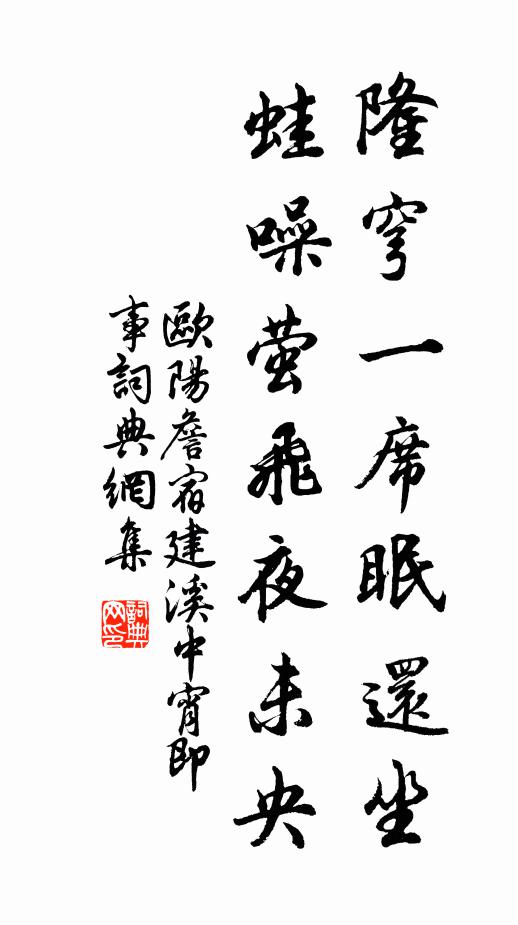 隆穹一席眠還坐
蛙噪萤飛夜未央
歐陽詹宿建溪中宵即
事詞典網集
詞典网印